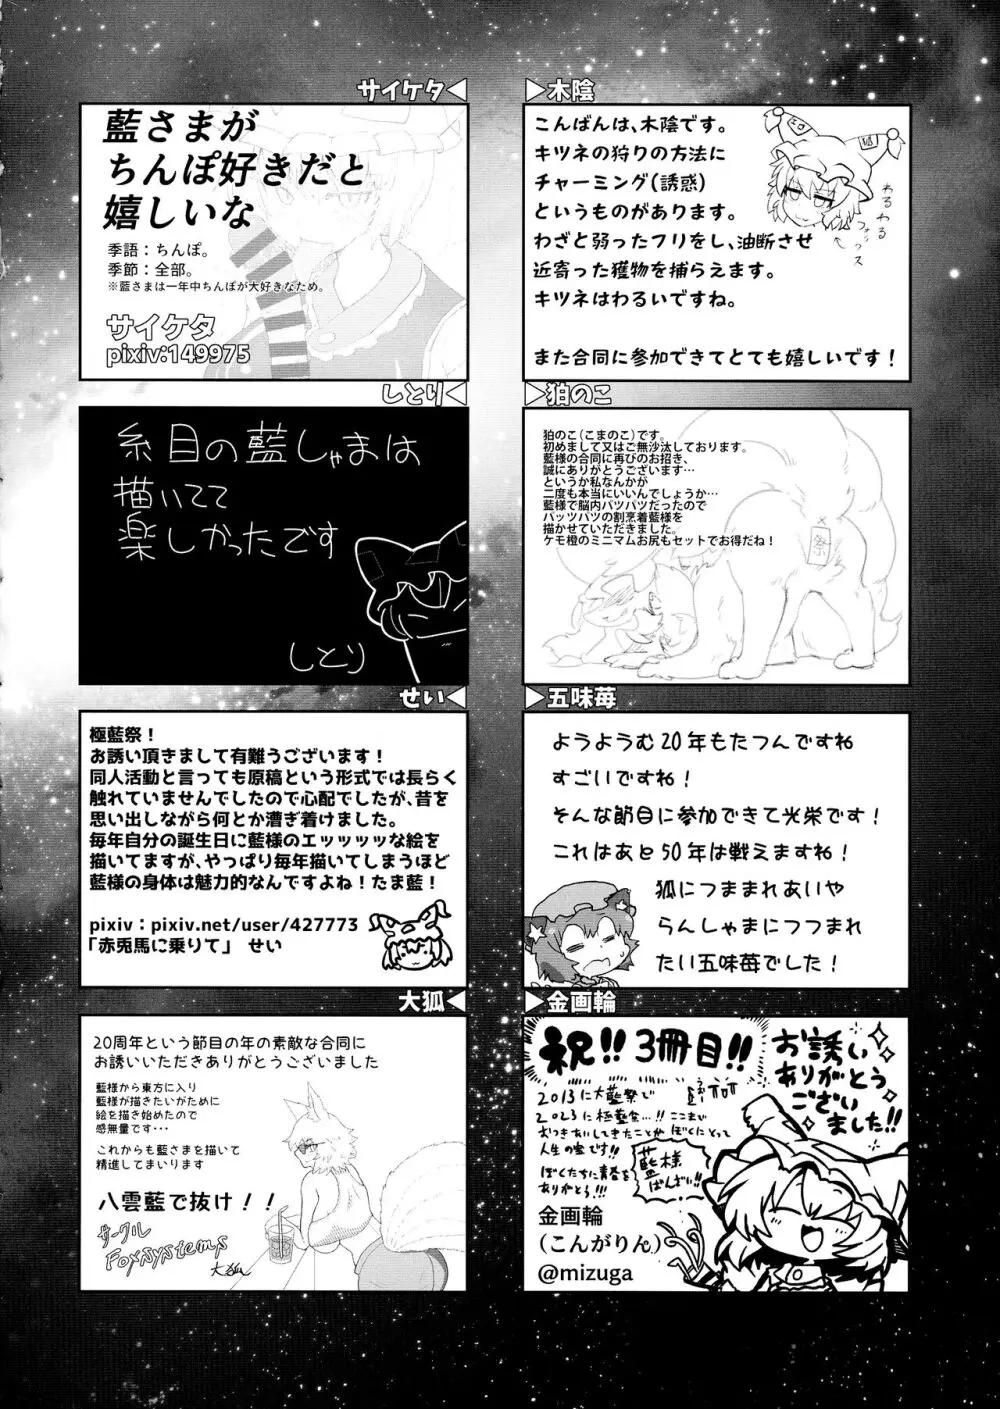 サイケタ
藍さまが
ちんぽ好きだと
嬉しいな
季語：ちんぽ。
季節：全部。
※藍さまは一年中ちんぽが大好きなため。
サイケタ
pixiv:149975
木陰
こんばんは、木陰です。
キツネの狩りの方法に
チャーミング(誘惑)
というものがあります。
わざと弱ったフリをし、油断させ
近寄った獲物を捕らえます。
キツネはわるいですね。
また合同に参加できてとても嬉しいです！
わるわる
フォックス
しとり
糸目の藍しゃまは
描いてて
楽しかったです
しとり
狛のこ
狛のこ（こまのこ）です。
初めまして又はご無沙汰しております。
藍様の合同に再びのお招き、
誠にありがとうございます…
というか私なんかが
二度も本当にいいんでしょうか…
藍様で脳内パツパツだったので
パッツパツの割烹着藍様を
描かせていただきました。
ケモ橙のミニマムお尻もセットでお得だね！
祭
せい
極藍祭！
お誘い頂きまして有難うございます！
同人活動と言っても原稿という形式では長らく
触れていませんでしたので心配でしたが、昔を
思い出しながら何とか漕ぎ着けました。
毎年自分の誕生日に藍様のエッッッッな絵を
描いてますが、やっぱり毎年描いてしまうほど
藍様の身体は魅力的なんですよね！たま藍！
pixiv：pixiv.net/user/427773
「赤兎馬に乗りて」　せい
五味苺
ようようむ20年もたつんですね
すごいですね！
そんな節目に参加できて光栄です！
これはあと50年は戦えますね！
狐につままれあいや
らんしゃまにつつまれ
たい五味苺でした！
大狐
20周年という節目の年の素敵な合同に
お誘いいただきありがとうございました
藍様から東方に入り
藍様が描きたいがために
絵を描き始めたので
感無量です…
これからも藍さまを描いて
精進してまいります
八雲藍で抜け！！
サークル
Foxsystems
大狐
金画輪
祝!! 3冊目!!
お誘い
ありがとう
ござい
ました!!
2013に大藍祭で
2023に極藍祭…!! ここまで
おつきあいしてきたことが ぼくにとって
人生の宝です!!
ぼくたちに青春を
ありがとう!!!
藍様
ばんざい!!
金画輪
(こんがりん)
@mizuga